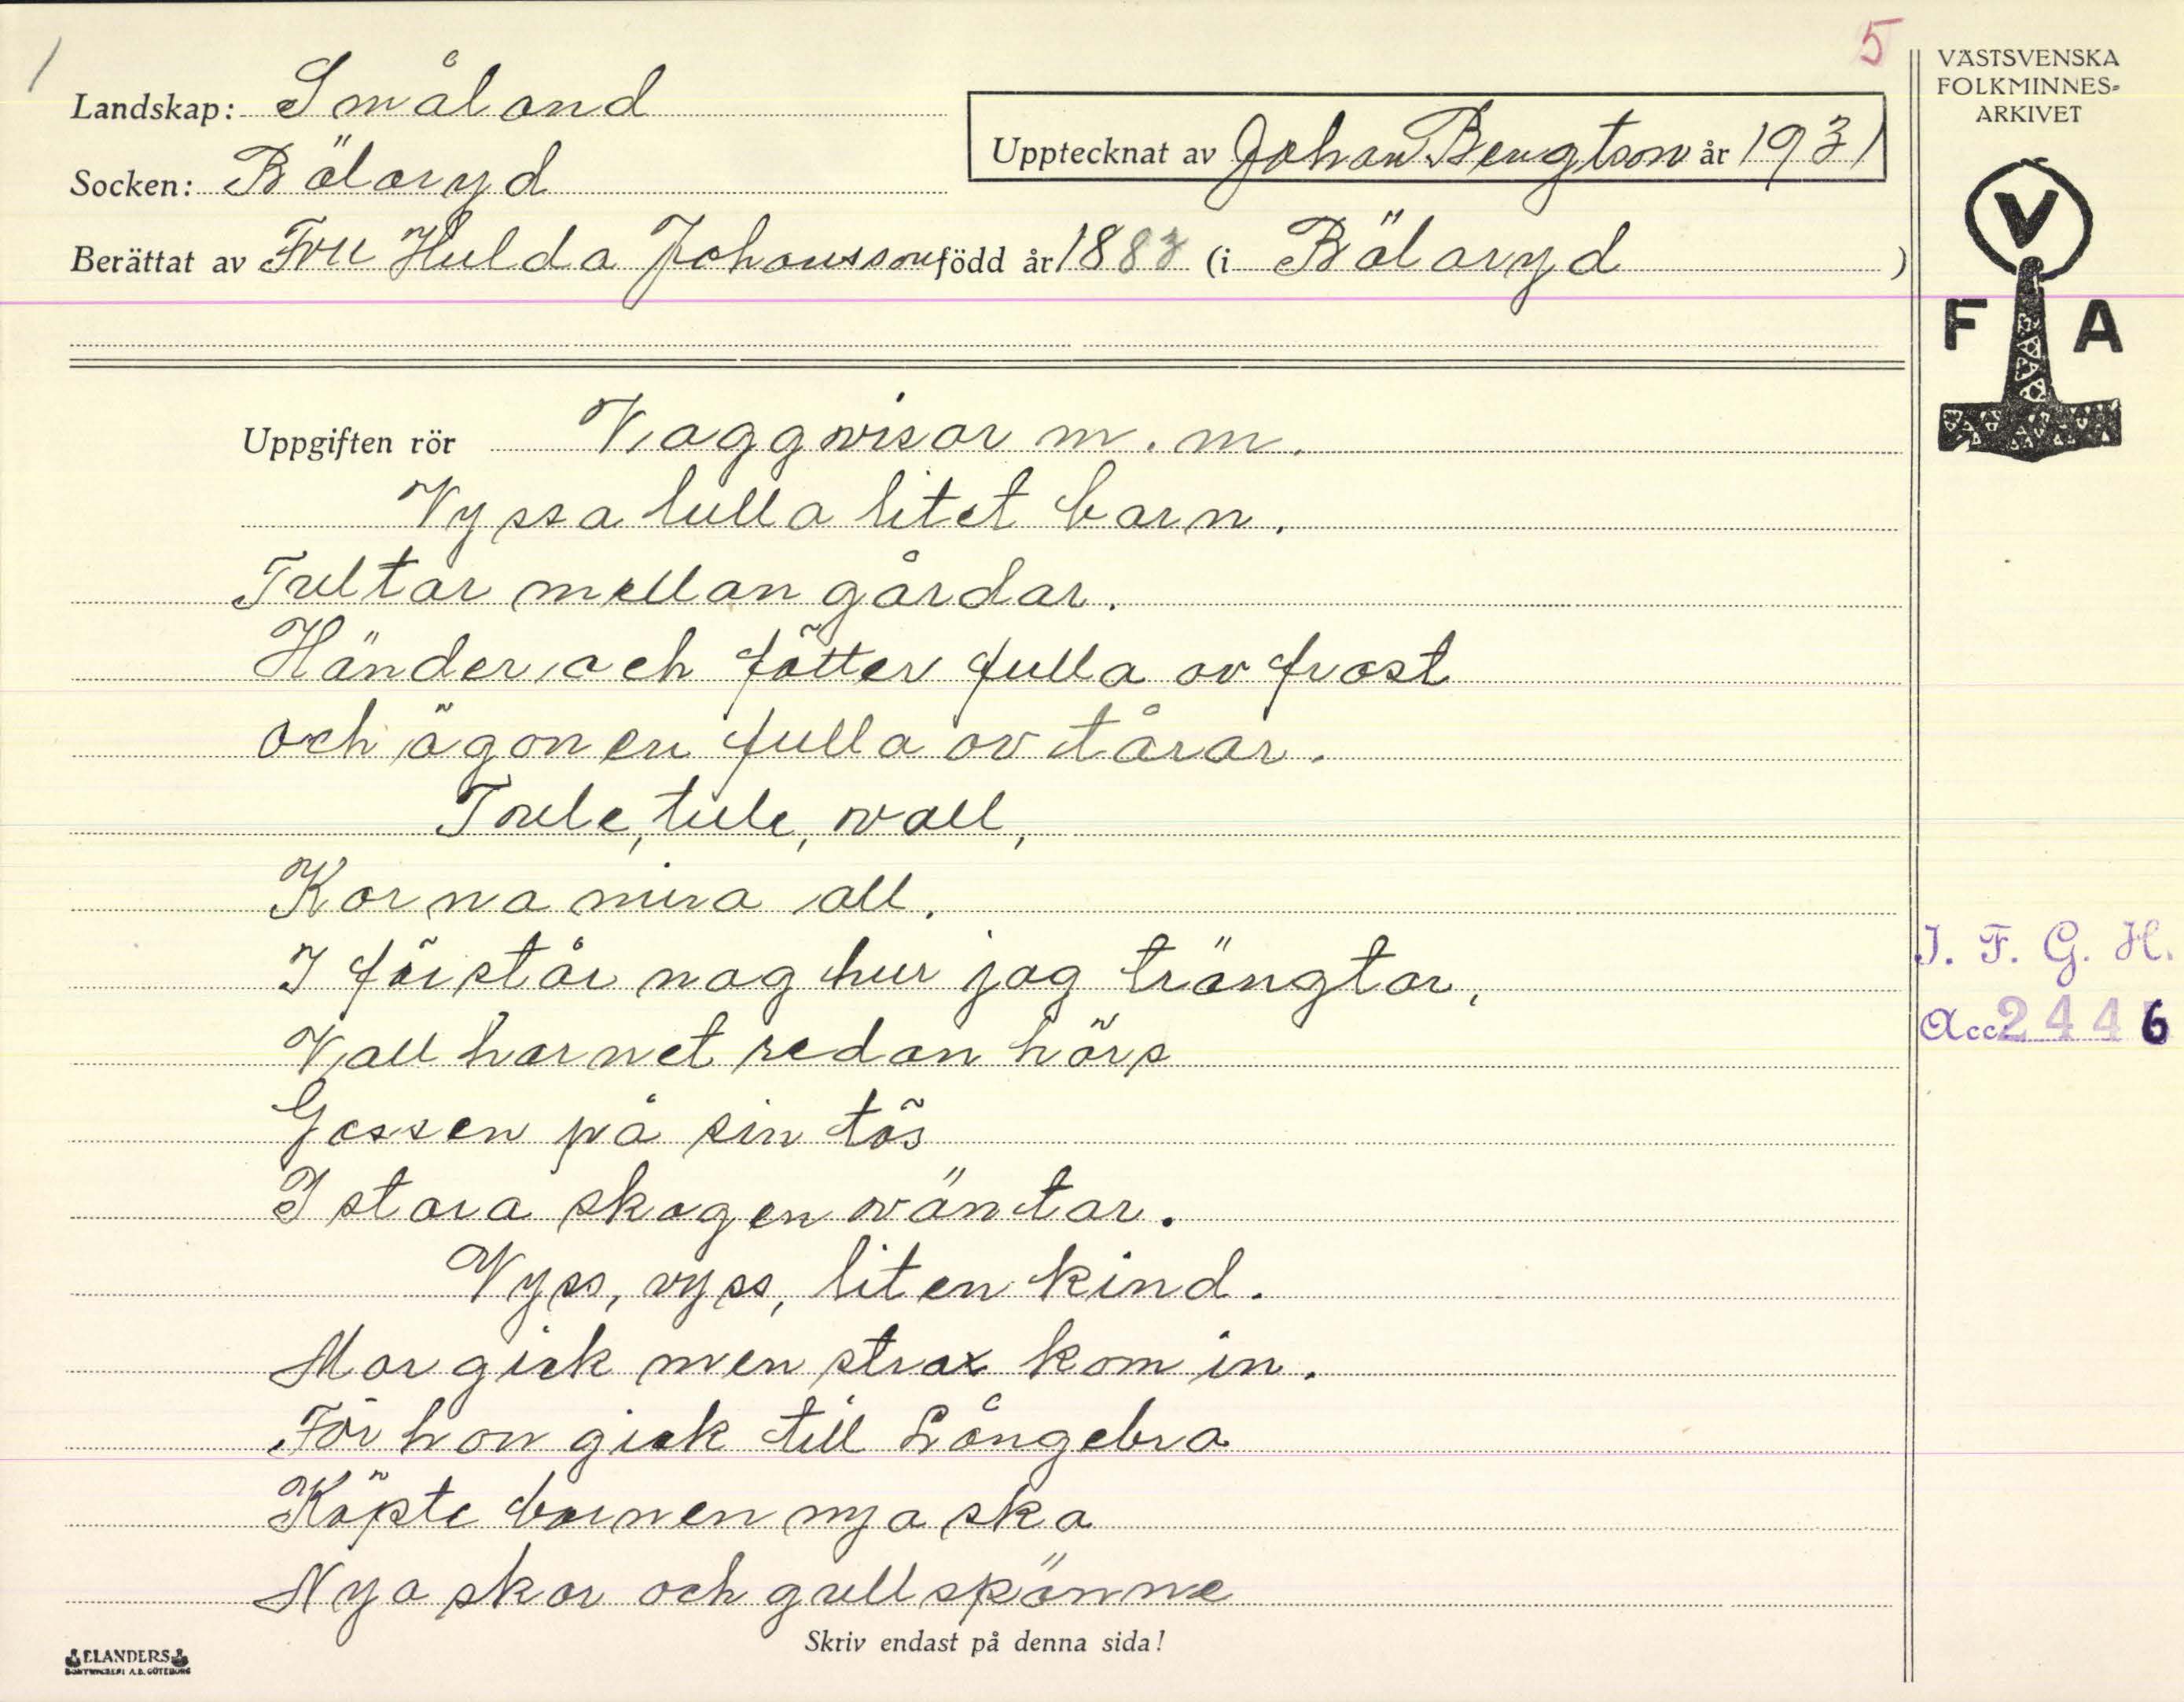 1
5
Landskap: Småland
Socken: Bälaryd
Upptecknat av Johan Bengtson år 1931
Berättat av Fru Hulda Johansson född år 1883 (i Bälaryd )
VÄSTSVENSKA
FOLKMINNES-
ARKIVET
V
F A
Uppgiften rör Vaggvisor m.m.
Vyssa lulla litet barn.
Tultar mellan gårdar.
Händer och fötter fulla av frost
och ögonen fulla av tårar.
Tule, tule, vall,
Korna mina all.
I förstår nog hur jag trängtar,
Vallhornet redan hörs
Gossen på sin tös
I stora skogen väntar.
Vyss, vyss, liten kind.
Mor gick men strax kom in.
För hon gick till Långebro
Köpte barnen nya sko
Nya skor och gullspänne
I. F. G. H.
Acc. 2446
Skriv endast på denna sida!
ELANDERS
BOKTRYCKERI A.B. GÖTEBORG